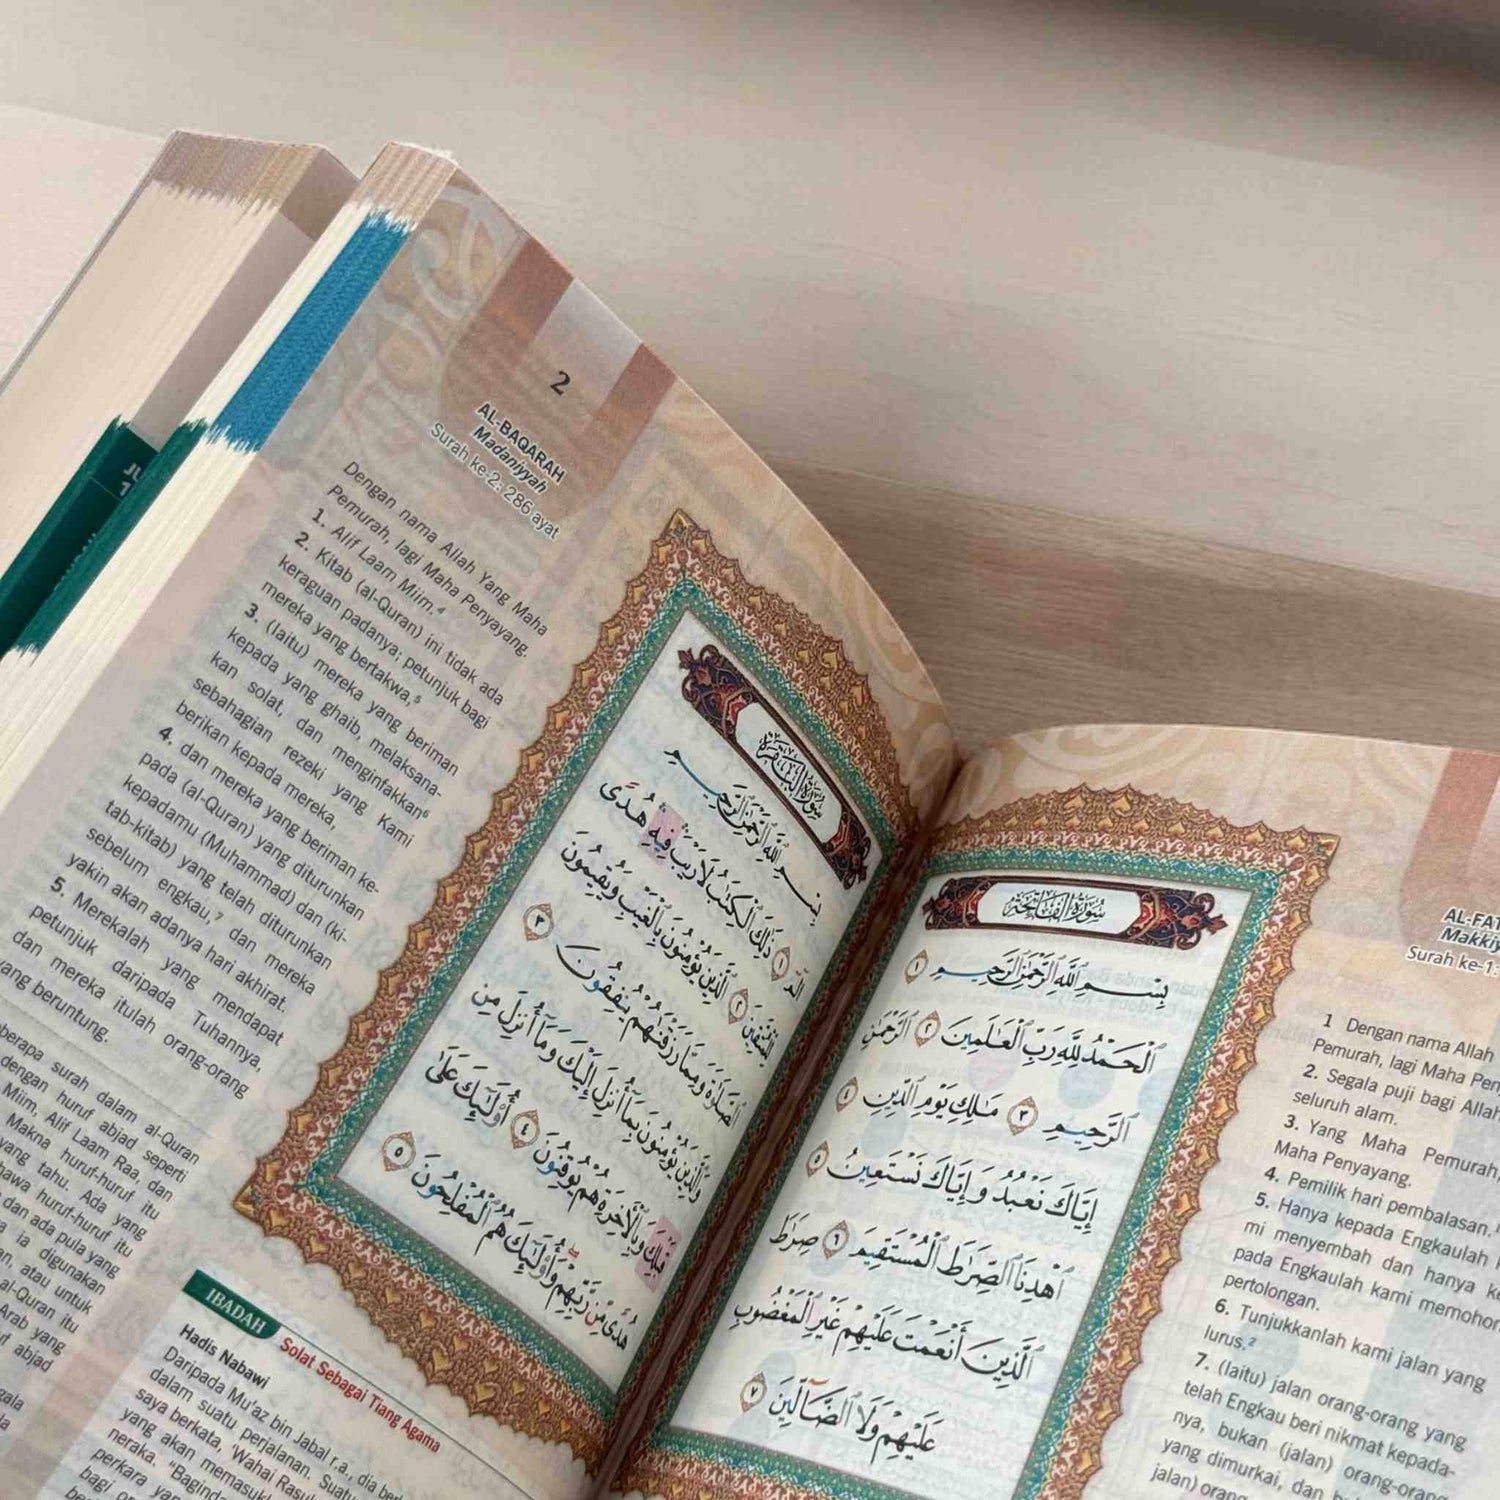 2
AL-BAQARAH
Madaniyyah
Surah ke-2: 286 ayat
Dengan nama Allah Yang Maha
Pemurah, lagi Maha Penyayang.
1. Alif Laam Miim.⁴
2. Kitab (al-Quran) ini tidak ada
keraguan padanya; petunjuk bagi
mereka yang bertakwa,⁵
3. (Iaitu) mereka yang beriman
kepada yang ghaib, melaksana-
kan solat, dan menginfakkan⁶
sebahagian rezeki yang Kami
berikan kepada mereka,
4. dan mereka yang beriman ke-
pada (al-Quran) yang diturunkan
kepadamu (Muhammad) dan (ki-
tab-kitab) yang telah diturunkan
sebelum engkau,⁷ dan mereka
yakin akan adanya hari akhirat.
5. Merekalah yang mendapat
petunjuk daripada Tuhannya,
dan mereka itulah orang-orang
yang beruntung.
berapa surah dalam al-Quran
dengan huruf abjad seperti
Miim, Alif Laam Raa, dan
Makna huruf-huruf itu
yang tahu. Ada yang
bawa huruf-huruf itu
dan ada pula yang
ia digunakan
atau untuk
al-Quran itu
Arab yang
abjad
IBADAH
Solat Sebagai Tiang Agama
Hadis Nabawi
Daripada Mu'az bin Jabal r.a., dia ber
dalam suatu perjalanan. Suatu
saya berkata, 'Wahai Rasul
yang akan memasuk
neraka. "Baginda
perkara yan
bagi or
سورة البقرة
بِسْمِ ٱللَّهِ ٱلرَّحْمَٰنِ ٱلرَّحِيمِ
الٓمٓ ١ ذَٰلِكَ ٱلْكِتَٰبُ لَا رَيْبَ ۛ فِيهِ ۛ هُدًى
لِّلْمُتَّقِينَ ٢ ٱلَّذِينَ يُؤْمِنُونَ بِٱلْغَيْبِ وَيُقِيمُونَ
ٱلصَّلَوٰةَ وَمِمَّا رَزَقْنَٰهُمْ يُنفِقُونَ ٣
وَٱلَّذِينَ يُؤْمِنُونَ بِمَآ أُنزِلَ إِلَيْكَ وَمَآ أُنزِلَ مِن
قَبْلِكَ وَبِٱلْءَاخِرَةِ هُمْ يُوقِنُونَ ٤ أُو۟لَٰٓئِكَ عَلَىٰ
هُدًى مِّن رَّبِّهِمْ ۖ وَأُو۟لَٰٓئِكَ هُمُ ٱلْمُفْلِحُونَ ٥
سورة الفاتحة
بِسْمِ ٱللَّهِ ٱلرَّحْمَٰنِ ٱلرَّحِيمِ ١
ٱلْحَمْدُ لِلَّهِ رَبِّ ٱلْعَٰلَمِينَ ٢ ٱلرَّحْمَٰنِ
ٱلرَّحِيمِ ٣ مَٰلِكِ يَوْمِ ٱلدِّينِ ٤
إِيَّاكَ نَعْبُدُ وَإِيَّاكَ نَسْتَعِينُ ٥
ٱهْدِنَا ٱلصِّرَٰطَ ٱلْمُسْتَقِيمَ ٦ صِرَٰطَ
ٱلَّذِينَ أَنْعَمْتَ عَلَيْهِمْ غَيْرِ ٱلْمَغْضُوبِ
عَلَيْهِمْ وَلَا ٱلضَّآلِّينَ ٧
AL-FAT
Makkiy
Surah ke-1:
1 Dengan nama Allah
Pemurah, lagi Maha Pen
2. Segala puji bagi Allah
seluruh alam.
3. Yang Maha Pemurah,
Maha Penyayang.
4. Pemilik hari pembalasan.
5. Hanya kepada Engkaulah
mi menyembah dan hanya ke
pada Engkaulah kami memohon
pertolongan.
6. Tunjukkanlah kami jalan yang
lurus.²
7. (Iaitu) jalan orang-orang yang
telah Engkau beri nikmat kepada-
nya, bukan (jalan) orang-orang
yang dimurkai, dan
jalan) orang